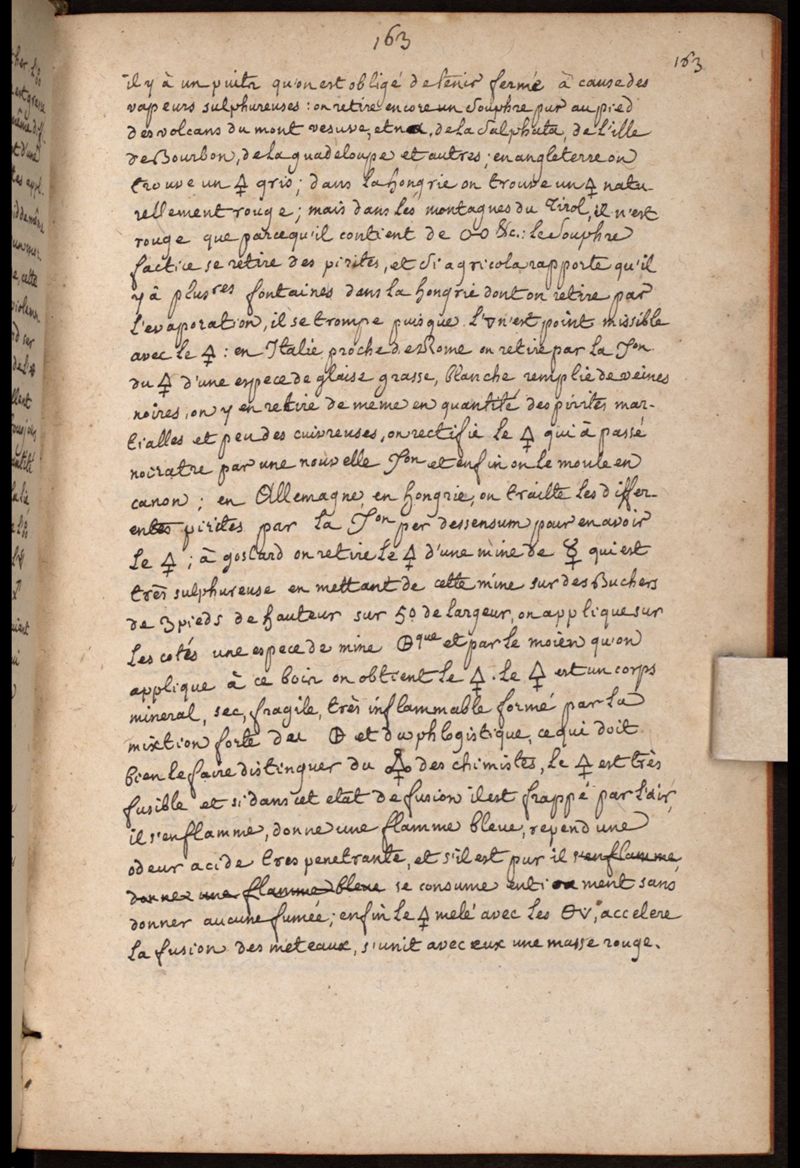 163
163
il y à un puits qu'on est obligé de tenir fermé à cause des
vapeurs sulphureuses : on retire encore un souphre pur au pied
des volcans du mont vesuve, etna, de la salphata, de l'ille
de Bourbon, de la guadeloupe et autres ; en angleterre on
trouve un 🜍 gris ; dans la hongrie on trouve un 🜍 natu-
rellement rouge ; mais dans les montagnes du Tirol, il n'est
rouge que parcequ'il contient de o-o &c. : le souphre
factice se retire des pirites, et si agricola rapporte qu'il
y à plus.res fontaines dans la hongrie dont on retire par
l'evaporation, il se trompe puisque l'🜄 n'est point missible
avec le 🜍 : en Italie proche de Rome on retire par la d.on
du 🜍 d'une espece de glaise grasse, blanche remplie de veines
noires, on y en retire de meme en quantité des pirites mar-
tialles et peu des cuivreuses, on rectifie le 🜍 qui à passé
noiratre par une nouvelle d.on et enfin on le moule en
canon ; en Allemagne, en hongrie, on traitte les differ-
entes pirites par la d.on per dessensum pour en avoir
le 🜍 ; à goslard on retire le 🜍 d'une mine de ♉ qui est
très sulphureuse en mettant de cette mine sur des Buchers
de 3 pieds de hauteur sur 50 de largeur, on applique sur
les cotés une espece de mine 🜨que et par le moien qu'on
applique à ce bois on obtient le 🜍. Le 🜍 est un corps
mineral, sec, fragile, très inflammable formé par la
mixtion forte des 🜨 et du phlogistique, ce qui doit
bien le faire distinguer du 🜍 des chimistes, le 🜍 est très
fusible et si dans cet etat de fusion il est frappé par l'air,
il s'enflamme, donne une flamme bleue, repend une
odeur acide tres penetrante, et s'il est pur il s'enflamme
donne une flamme bleue se consume entierement sans
donner aucune fumée ; enfin le 🜍 melé avec les 🜔🜄, accelere
la fusion des meteaux, s'unit avec eux une masse rouge.